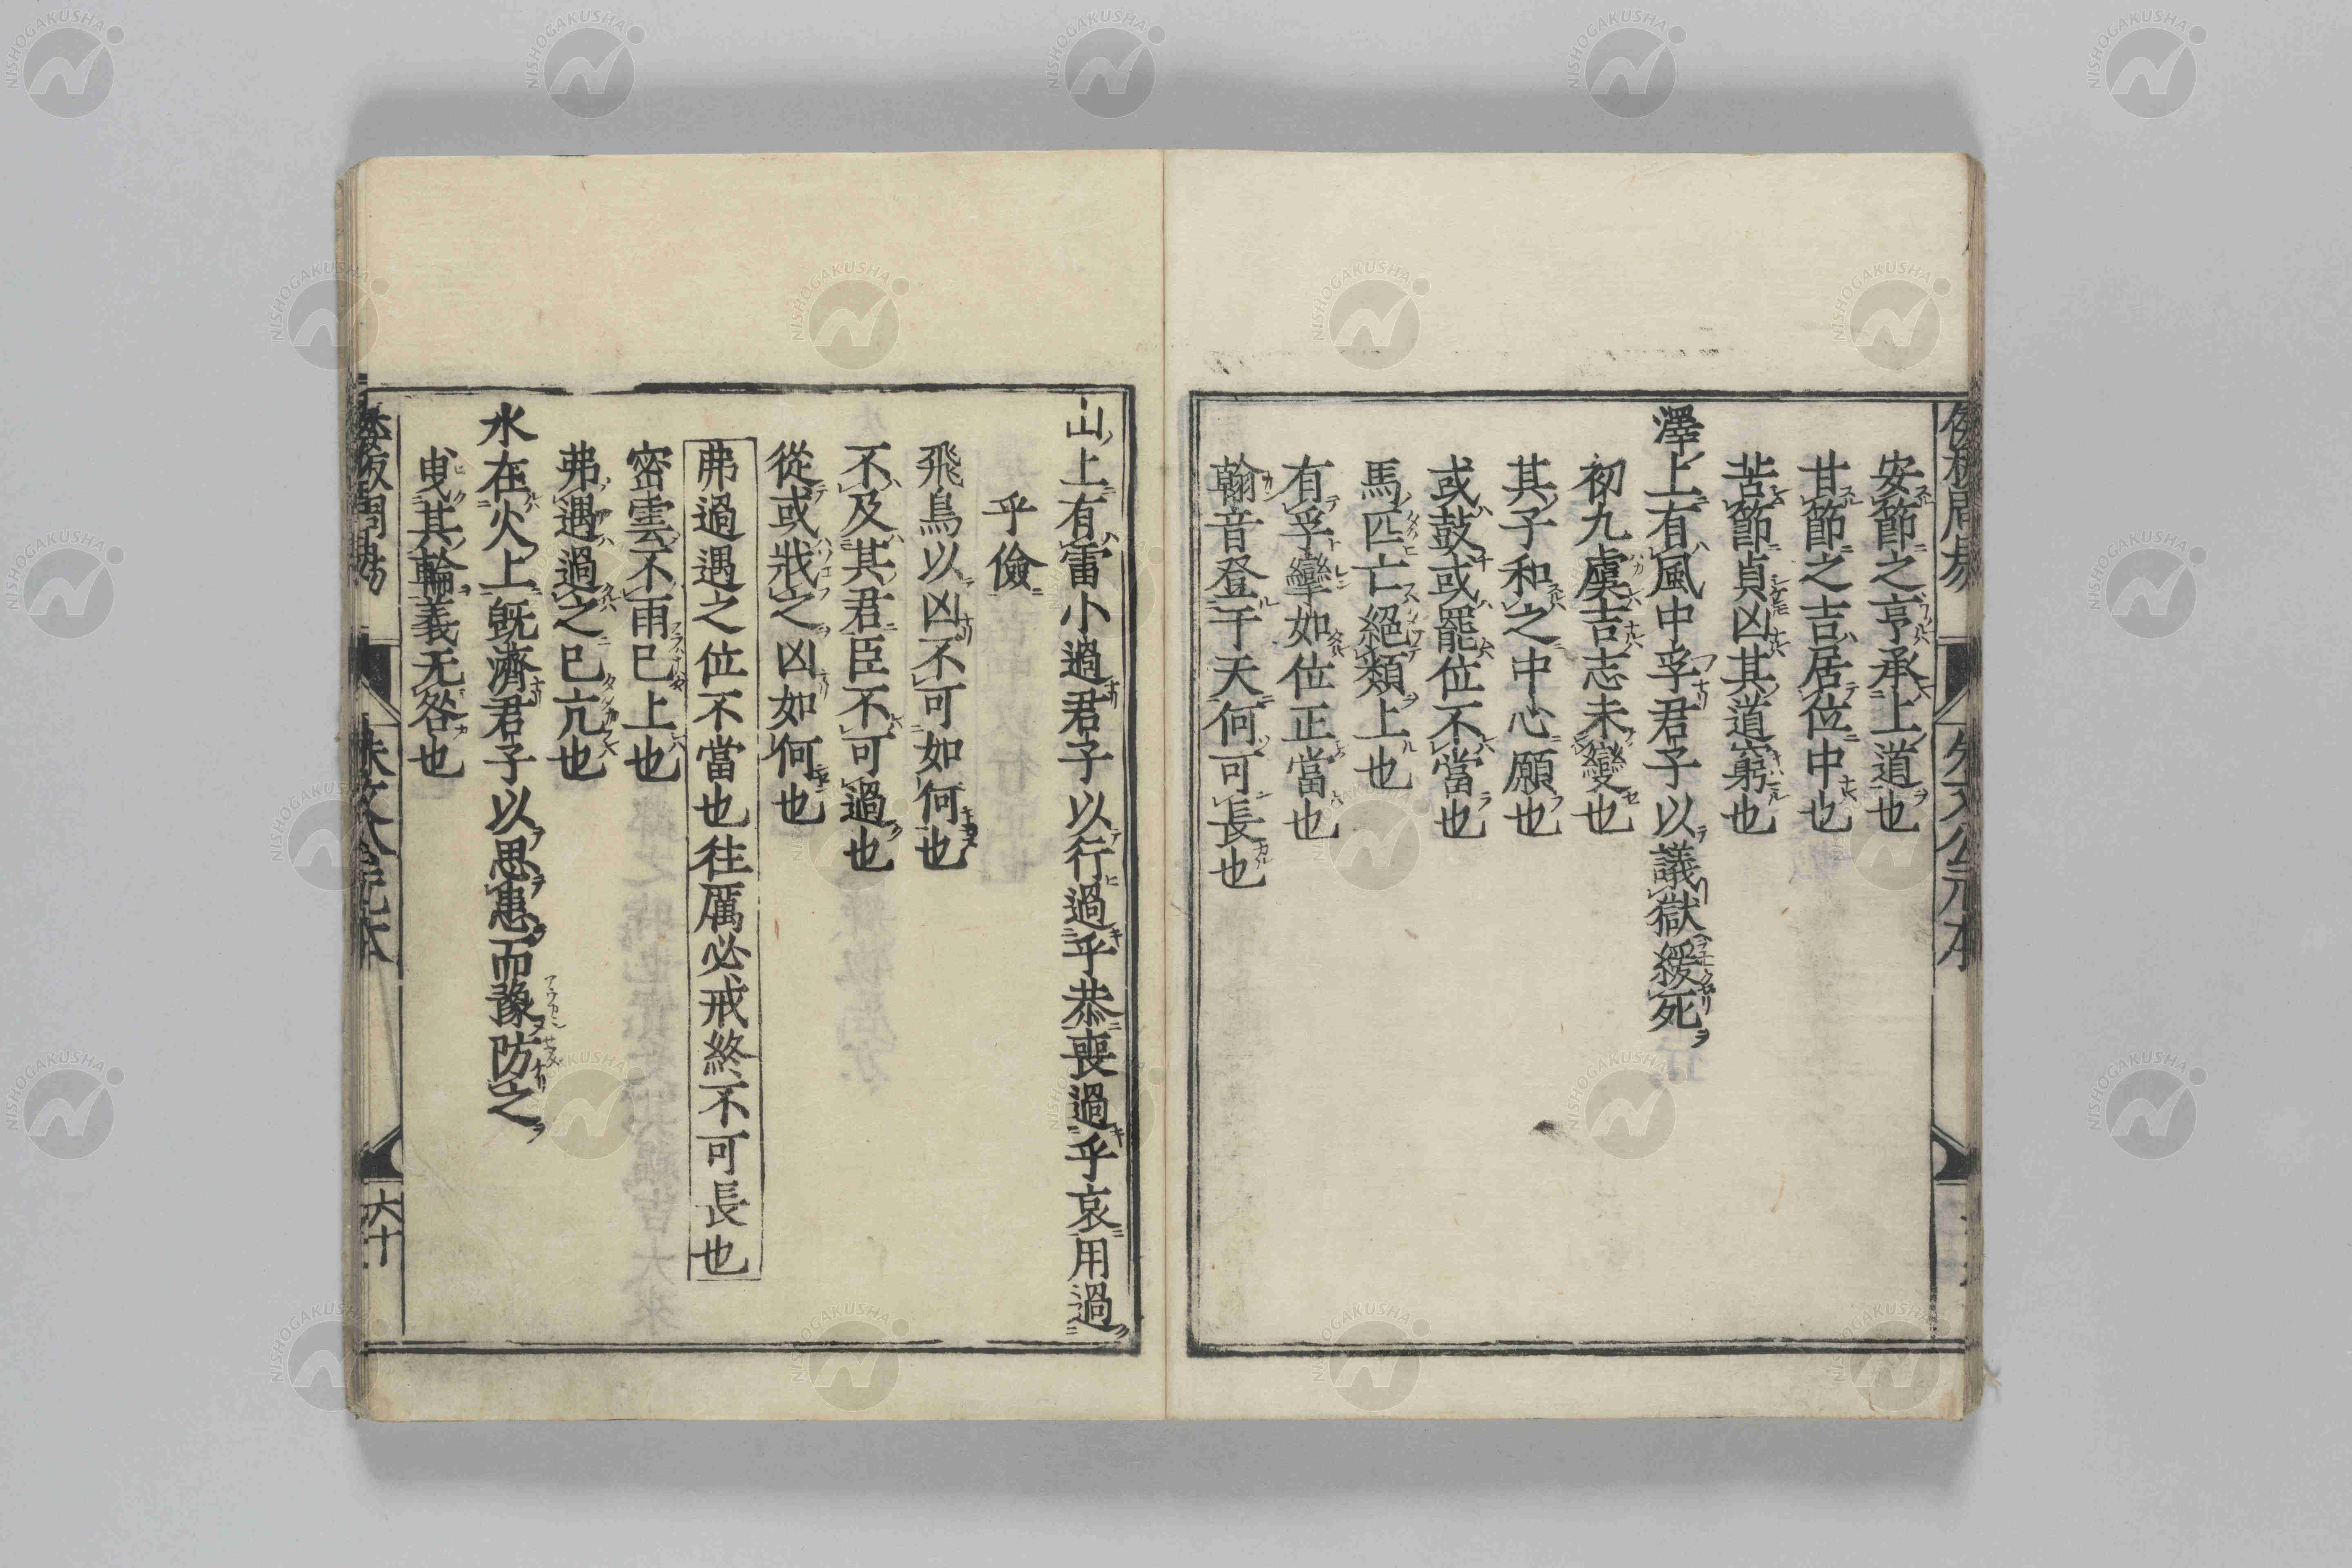 安節之亨承上道也
甘節之吉居位中也
苦節貞凶其道窮也
澤上有風中孚君子以議獄緩死
初九虞吉志未變也
其子和之中心願也
或鼓或罷位不當也
馬匹亡絕類上也
有孚攣如位正當也
翰音登于天何可長也
山上有雷小過君子以行過乎恭喪過乎哀用過
乎儉
飛鳥以凶不可如何也
不及其君臣不可過也
從或戕之凶如何也
弗過遇之位不當也往厲必戒終不可長也
密雲不雨已上也
弗遇過之已亢也
水在火上旣濟君子以思患而豫防之
曳其輪義无咎也
六十
NISHOGAKUSHA